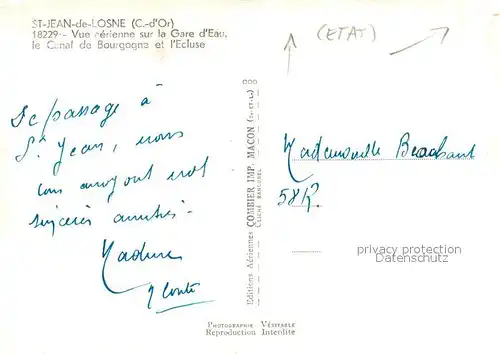 ST-JEAN-de-LOSNE (C.-d'Or)
18229 - Vue aérienne sur la Gare d'Eau,
le Canal de Bourgogne et l'Ecluse
(ETAT)
De passage à
St Jean, nous
vous envoyons nos
sincères amitiés.
Madame
Mademoiselle
58 R.
Editions Aériennes COMBIER IMP. MACON (S.-et-L.)
CLICHÉ
privacy protection
Datenschutz
PHOTOGRAPHIE VÉRITABLE
Reproduction Interdite